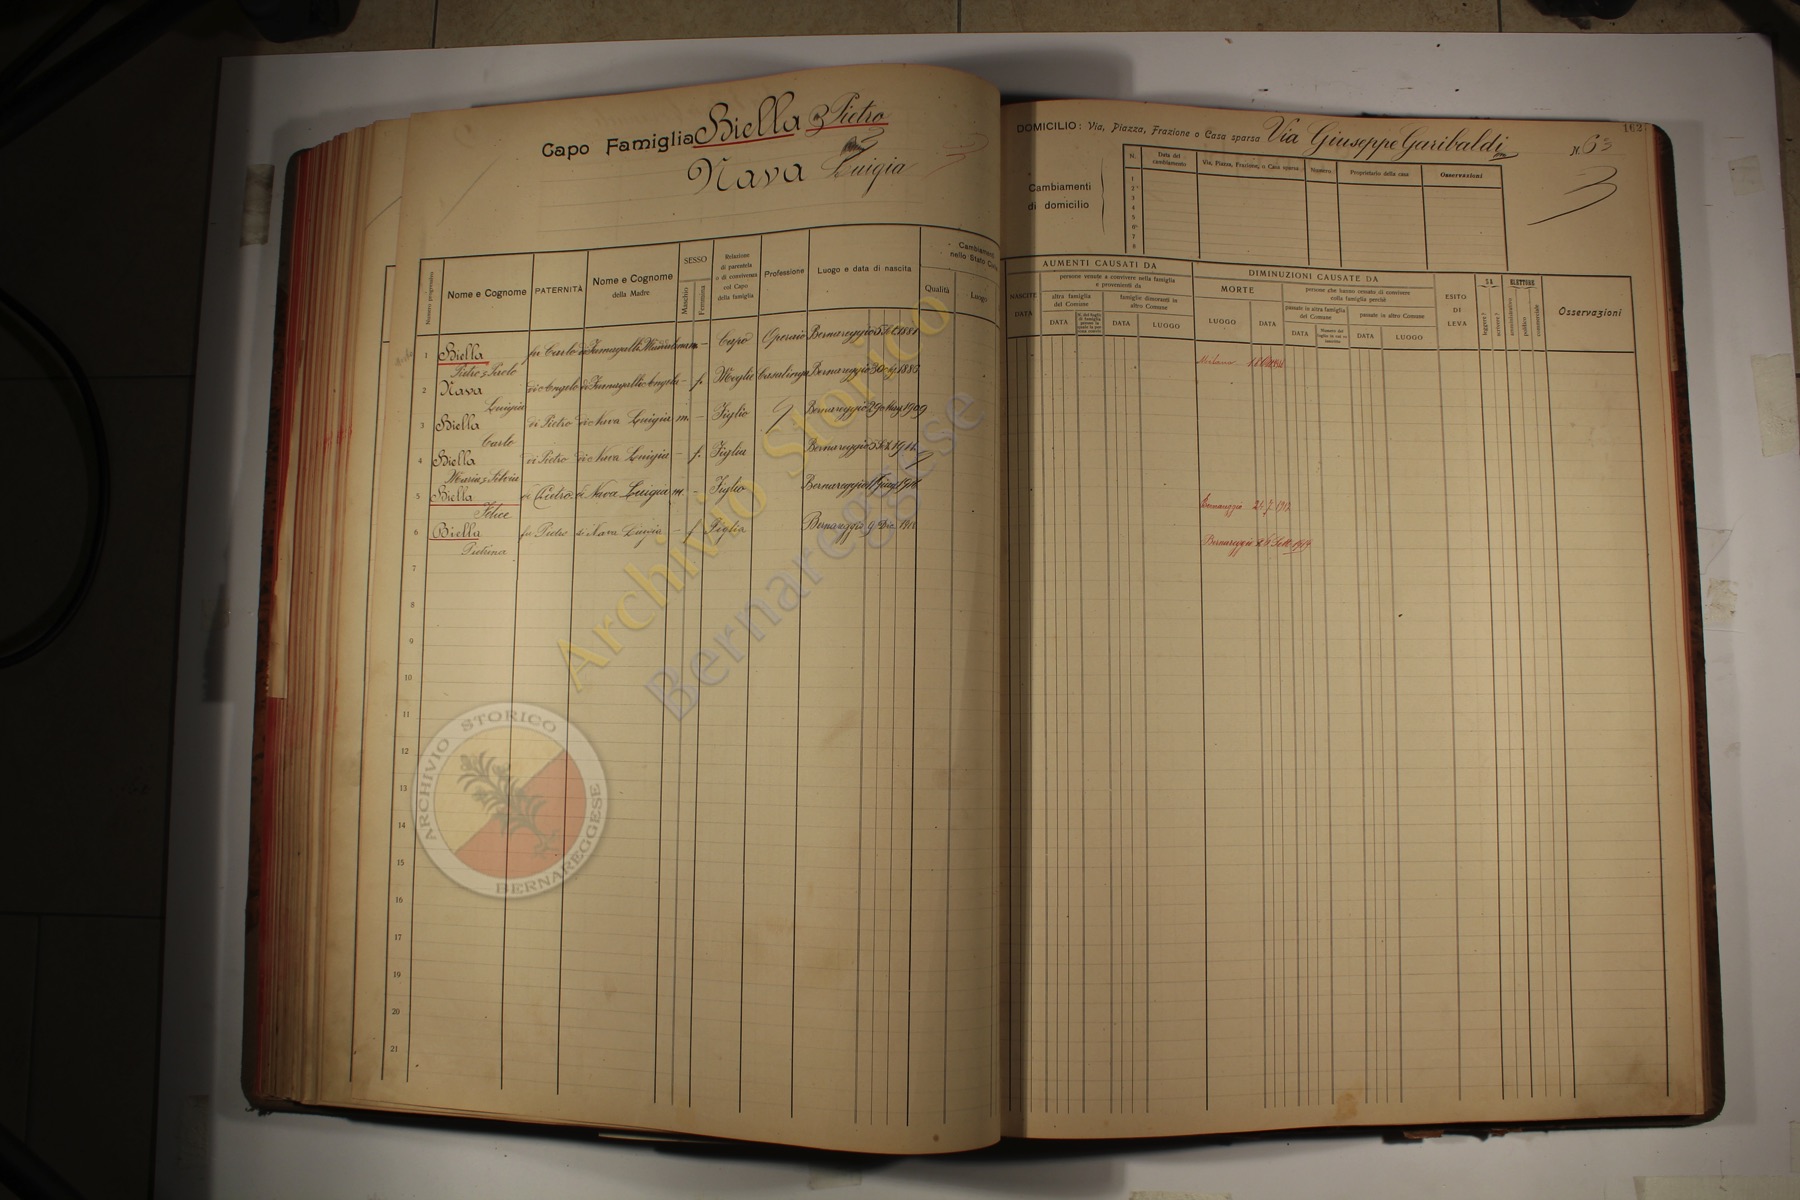 Capo Famiglia Biella Pietro
Nava Luigia
Numero progressivo
Nome e Cognome
PATERNITÀ
Nome e Cognome
della Madre
SESSO
Maschio
Femmina
Relazione
di parentela
o di convivenza
col Capo
della famiglia
Professione
Luogo e data di nascita
Cambiamenti
nello Stato Civile
Qualità
Luogo
1 Biella fu Carlo di Fumagalli m – Capo Operaio Bernareggio
Pietro
2 Nava di Angelo di Fumagalli Angela – f. Moglie Casalinga Bernareggio
Luigia
3 Biella di Pietro di Nava Luigia m. – Figlio Bernareggio 29 1909
Carlo
4 Biella di Pietro di Nava Luigia – f. Figlia Bernareggio
Maria
5 Biella di Pietro di Nava Luigia m. – Figlio Bernareggio
Felice
6 Biella fu Pietro di Nava Luigia – f Figlia Bernareggio 9 Dic.
Pietrina
7
8
9
10
11
12
13
14
15
16
17
18
19
20
21
162
DOMICILIO: Via, Piazza, Frazione o Casa sparsa Via Giuseppe Garibaldi N. 63
3
Cambiamenti
di domicilio
N.
Data del
cambiamento
Via, Piazza, Frazione, o Casa sparsa
Numero
Proprietario della casa
Osservazioni
1
2
3
4
5
6
7
8
AUMENTI CAUSATI DA
NASCITE
DATA
persone venute a convivere nella famiglia
e provenienti da
altra famiglia
del Comune
DATA
famiglie dimoranti in
altro Comune
DATA
LUOGO
DIMINUZIONI CAUSATE DA
MORTE
LUOGO
DATA
persone che hanno cessato di convivere
colla famiglia perchè
passate in altra famiglia
del Comune
DATA
passate in altro Comune
DATA
LUOGO
ESITO
DI
LEVA
SA
leggere?
scrivere?
ELETTORE
amministrativo
politico
commerciale
Osservazioni
Milano
Bernareggio
Bernareggio
Archivio Storico
Bernareggese
ARCHIVIO STORICO
BERNAREGGESE